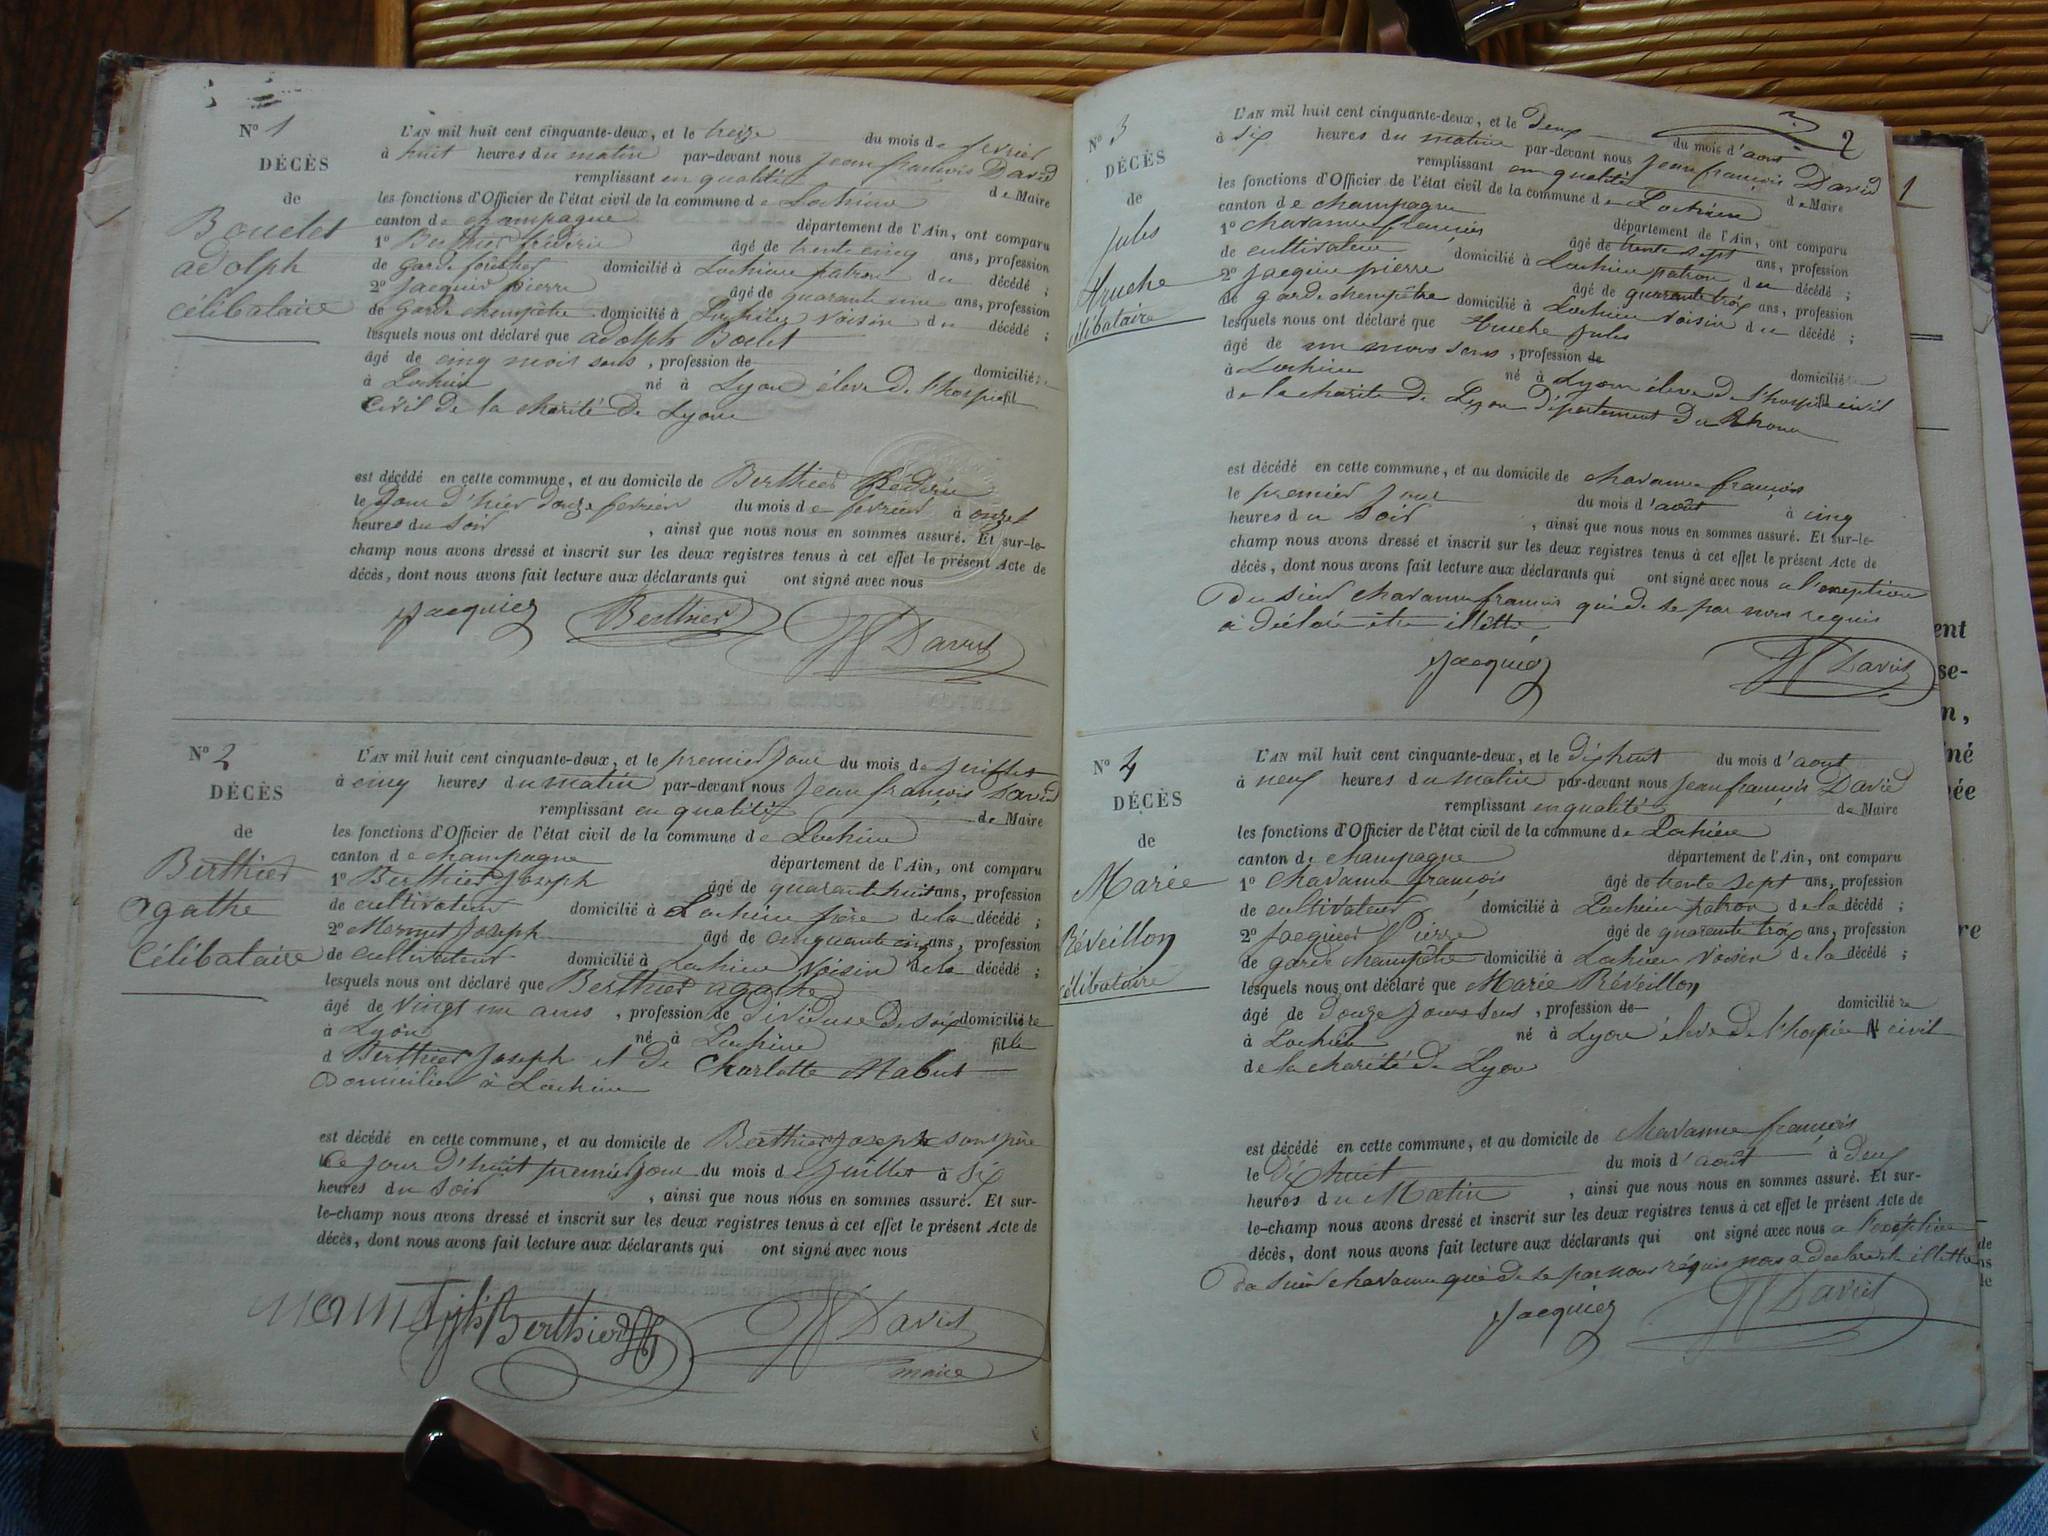 N° 1
DÉCÈS
de
Bouclet
adolph
Célibataire
L'AN mil huit cent cinquante-deux, et le treize du mois de fevrier
à huit heures du matin par-devant nous Jean françois David
remplissant en qualité de Maire
les fonctions d'Officier de l'état civil de la commune de Lochieu
canton de champagne département de l'Ain, ont comparu
1° Berthier frédéric âgé de trente cinq ans, profession
de garde forestier domicilié à Lochieu patron du décédé ;
2° Jacquier pierre âgé de quarante ans, profession
de garde champêtre domicilié à Lochieu Voisin du décédé ;
lesquels nous ont déclaré que adolph Boclet
âgé de cinq mois , profession de domicilié
à Lochieu né à Lyon élève de l'hospice fil
Civil de la charité de Lyon
est décédé en cette commune, et au domicile de Berthier fréderic
le Jour d'hier douze fevrier du mois de fevrier à onze
heures du Soir , ainsi que nous nous en sommes assuré. Et sur-le-
champ nous avons dressé et inscrit sur les deux registres tenus à cet effet le présent Acte de
décès, dont nous avons fait lecture aux déclarants qui ont signé avec nous
Jacquier Berthier David
N° 2
DÉCÈS
de
Berthier
agathe
Célibataire
L'AN mil huit cent cinquante-deux, et le premier Jour du mois de Juillet
à cinq heures du matin par-devant nous Jean françois David
remplissant en qualité de Maire
les fonctions d'Officier de l'état civil de la commune de Lochieu
canton de champagne département de l'Ain, ont comparu
1° Berthier Joseph âgé de quarante huit ans, profession
de cultivateur domicilié à Lochieu père de la décédé ;
2° Mermet Joseph âgé de cinquante cinq ans, profession
de cultivateur domicilié à Lochieu Voisin de la décédé ;
lesquels nous ont déclaré que Berthier agathe
âgé de vingt un ans , profession de Dévideuse De soie domicilié
à Lyon né à Lochieu fille
d Berthier Joseph et de Charlotte Mabut
Domicilier à Lochieu
est décédé en cette commune, et au domicile de Berthier Joseph son père
le Jour d'huit premier Jour du mois de Juillet à Six
heures du Soir , ainsi que nous nous en sommes assuré. Et sur-
le-champ nous avons dressé et inscrit sur les deux registres tenus à cet effet le présent Acte de
décès, dont nous avons fait lecture aux déclarants qui ont signé avec nous
Berthier David
maire
2
N° 3
DÉCÈS
de
Jules
Truche
célibataire
L'AN mil huit cent cinquante-deux, et le Deux du mois d'aout
à six heures du matin par-devant nous Jean françois David
remplissant en qualité de Maire
les fonctions d'Officier de l'état civil de la commune de Lochieu
canton de champagne département de l'Ain, ont comparu
1° chavanne françois âgé de trente sept ans, profession
de cultivateur domicilié à Lochieu patron du décédé ;
2° Jacquier pierre âgé de quarante trois ans, profession
de garde champêtre domicilié à Lochieu Voisin du décédé ;
lesquels nous ont déclaré que Truche Jules
âgé de un mois , profession de domicilié
à Lochieu né à Lyon élève de l'hospice fil civil
de la charité de Lyon département du Rhone
est décédé en cette commune, et au domicile de chavanne françois
le premier Jour du mois d'août à cinq
heures du Soir , ainsi que nous nous en sommes assuré. Et sur-le-
champ nous avons dressé et inscrit sur les deux registres tenus à cet effet le présent Acte de
décès, dont nous avons fait lecture aux déclarants qui ont signé avec nous a l'exeption
du sieur chavanne francois qui de se par nous requis
à déclaré être illettré
Jacquier David
N° 4
DÉCÈS
de
Marée
Réveillon
célibataire
L'AN mil huit cent cinquante-deux, et le dixhuit du mois d'aout
à neuf heures du matin par-devant nous Jean françois David
remplissant en qualité de Maire
les fonctions d'Officier de l'état civil de la commune de Lochieu
canton de champagne département de l'Ain, ont comparu
1° chavanne françois âgé de trente sept ans, profession
de cultivateur domicilié à Lochieu patron de la décédé ;
2° Jacquier Pierre âgé de quarante trois ans, profession
de garde champêtre domicilié à Lochieu Voisin de la décédé ;
lesquels nous ont déclaré que Marée Réveillon
âgé de Douze Jours , profession de domicilié
à Lochieu né à Lyon élève de l'hospice civil
de la charité de Lyon
est décédé en cette commune, et au domicile de chavanne françois
le Dixhuit du mois d'août à deux
heures du Matin , ainsi que nous nous en sommes assuré. Et sur-
le-champ nous avons dressé et inscrit sur les deux registres tenus à cet effet le présent Acte de
décès, dont nous avons fait lecture aux déclarants qui ont signé avec nous a l'exéption
du sieur chavanne qui de se par nous réquis nous a declare être illettré
Jacquier David
1